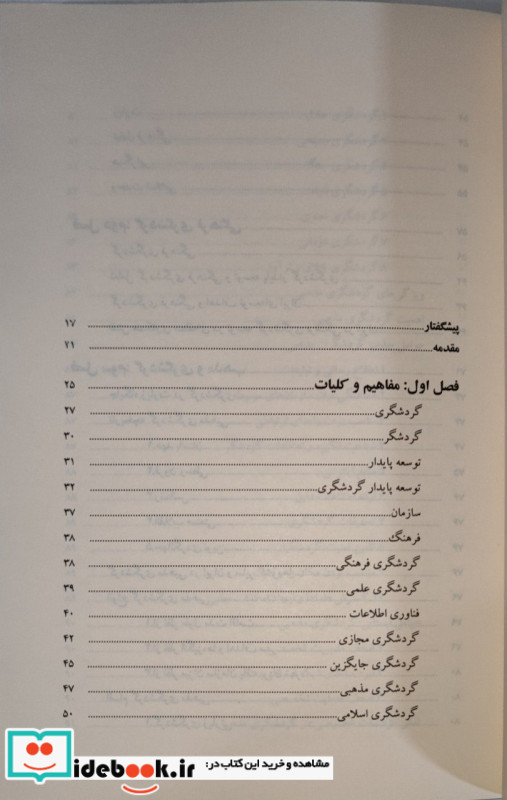 پیشگفتار........................۱۷
مقدمه........................۲۱
فصل اول: مفاهیم و کلیات........................۲۵
گردشگری........................۲۷
گردشگر........................۳۰
توسعه پایدار........................۳۱
توسعه پایدار گردشگری........................۳۲
سازمان........................۳۷
فرهنگ........................۳۸
گردشگری فرهنگی........................۳۸
گردشگری علمی........................۳۹
فناوری اطلاعات........................۴۰
گردشگری مجازی........................۴۲
گردشگری جایگزین........................۴۵
گردشگری مذهبی........................۴۷
گردشگری اسلامی........................۵۰
مشاهده و خرید این کتاب در:
idebook.ir